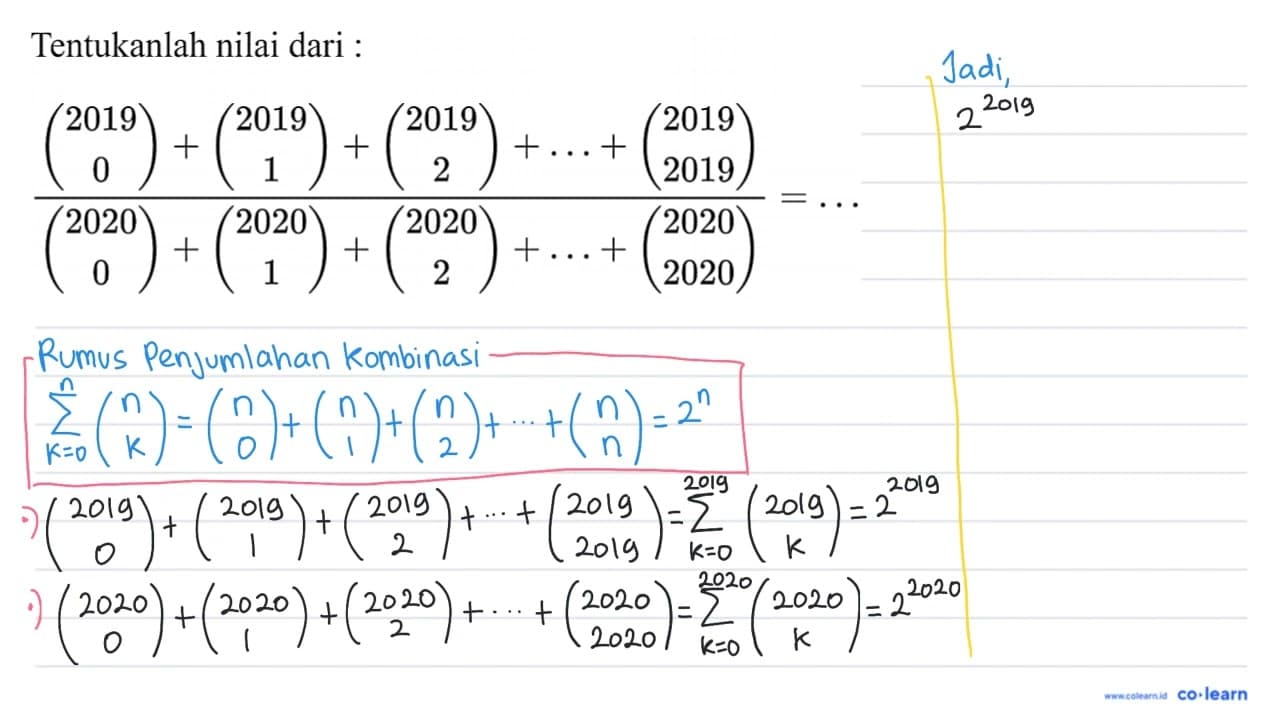 Tentukanlah nilai dari :
\frac{\binom{2019}{0} + \binom{2019}{1} + \binom{2019}{2} + \ldots + \binom{2019}{2019}}{\binom{2020}{0} + \binom{2020}{1} + \binom{2020}{2} + \ldots + \binom{2020}{2020}} = \ldots
Rumus Penjumlahan Kombinasi
\sum_{k=0}^{n} \binom{n}{k} = \binom{n}{0} + \binom{n}{1} + \binom{n}{2} + \cdots + \binom{n}{n} = 2^n
•) \binom{2019}{0} + \binom{2019}{1} + \binom{2019}{2} + \cdots + \binom{2019}{2019} = \sum_{k=0}^{2019} \binom{2019}{k} = 2^{2019}
•) \binom{2020}{0} + \binom{2020}{1} + \binom{2020}{2} + \cdots + \binom{2020}{2020} = \sum_{k=0}^{2020} \binom{2020}{k} = 2^{2020}
Jadi,
2^{2019}
www.colearn.id co·learn